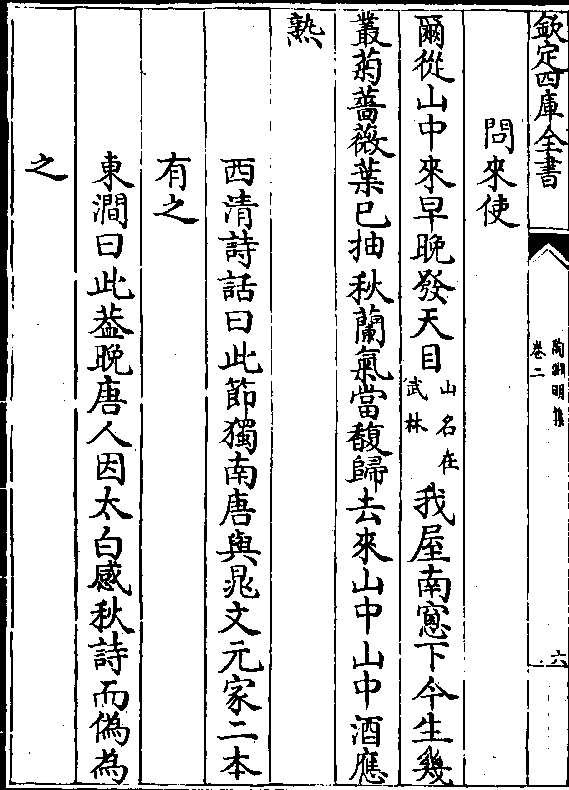 欽定四庫全書
陶淵明集
卷二
六
問來使
爾從山中來早晚發天目山名在武林我屋南窓下今生幾
叢菊薔薇葉已抽秋蘭氣當馥歸去來山中山中酒應
熟
西清詩話曰此節獨南唐與晁文元家二本
有之
東澗曰此葢晚唐人因太白感秋詩而偽為
之